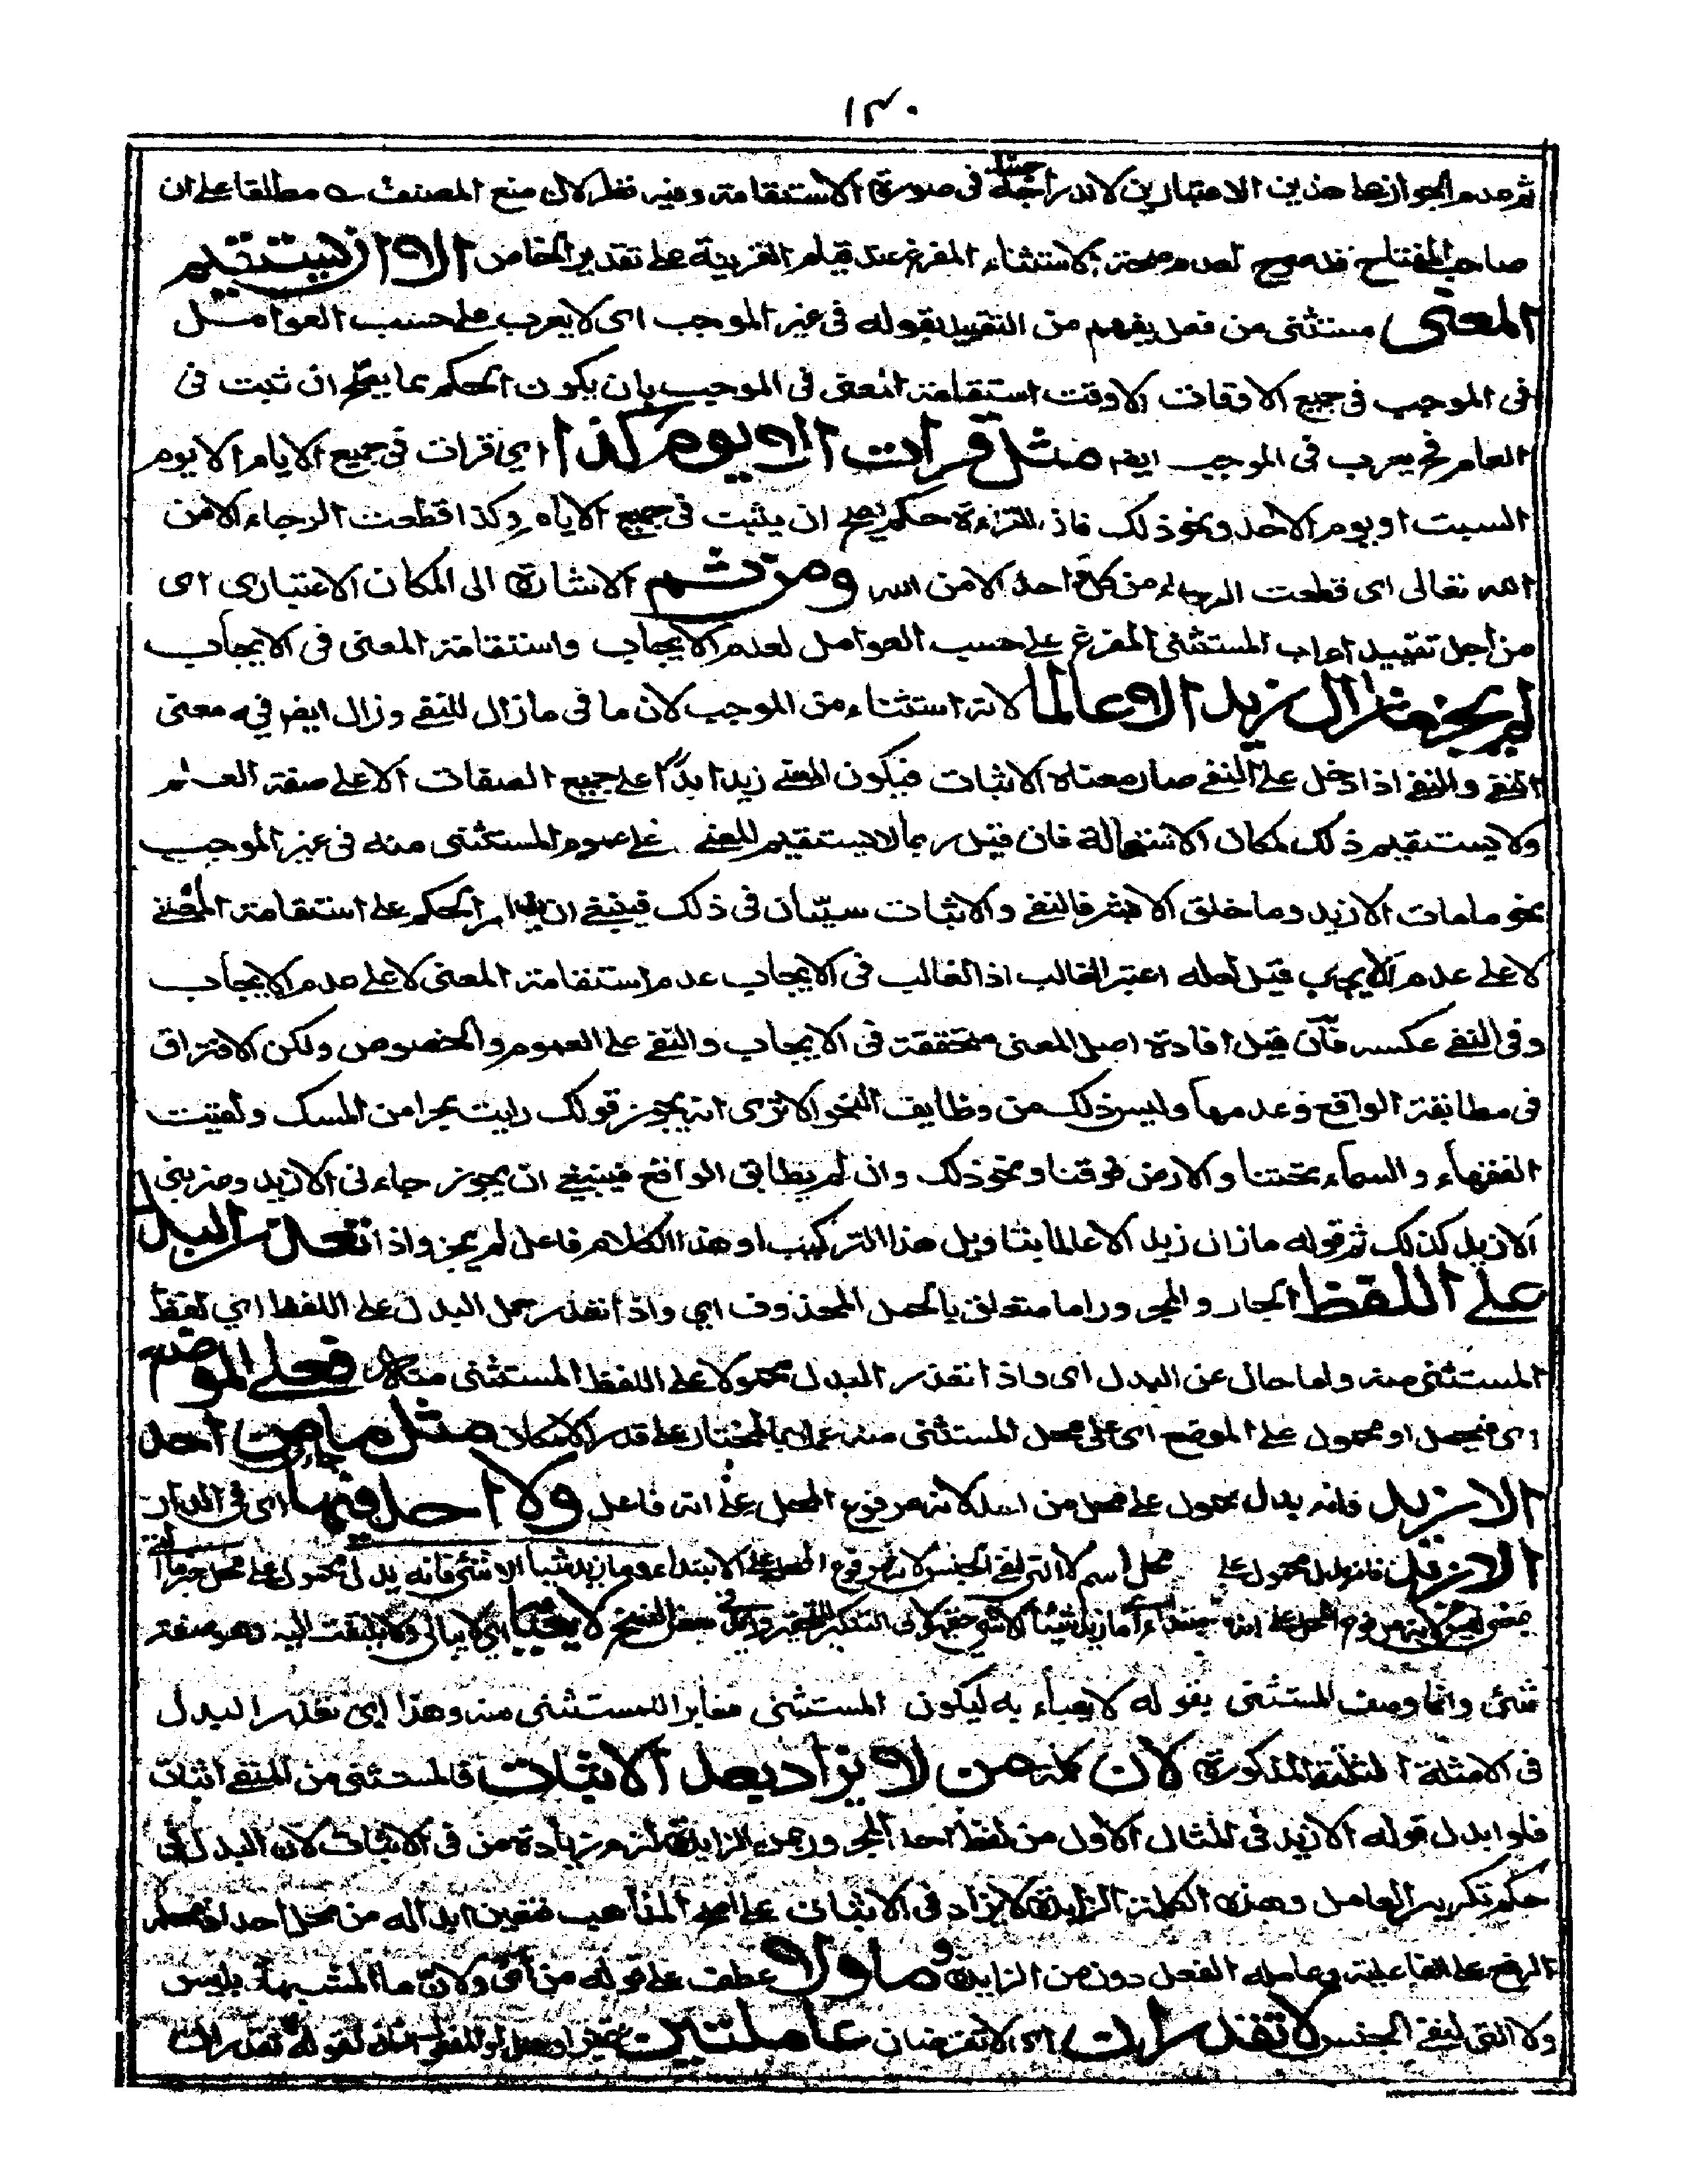 ١٣٠
ثم عدم الجواز بهذين الاعتبارين لاندراجه في صورة الاستقامة وفيه نظر لان منع المصنف مطلقا على ان
صاحب المفتاح قد صرح لعدم صحة الاستثناء المفرغ عند قيام القرينة على تقدير الخاص الا ان يستقيم
المعنى مستثنى من فعل يفهم من التقييد بقوله في غير الموجب اى لا يعرب على حسب العوامل
فى الموجب فى جميع الاوقات الا وقت استقامة المعنى فى الموجب بان يكون الحكم مما يصح ان ثبت فى
العام فح يعرب فى الموجب ايضا مثل قرات الا يوم كذا اي قرات فى جميع الايام الا يوم
السبت او يوم الاحد ونحو ذلك فان القراءة حكم يصح ان يثبت فى جميع الايام وكذا قطعت الرجاء الا من
الله تعالى اى قطعت الرجاء من كل احد الا من الله ومن ثم الاشارة الى المكان الاعتبارى اى
من اجل تقييد اعراب المستثنى المفرغ على حسب العوامل لعدم الايجاب واستقامة المعنى فى الايجاب
لم يجز ما زال زيد الا عالما لانه استثناء من الموجب لان ما فى ما زال للنفي وزال ايضا فيه معنى
النفي والنفي اذا دخل على النفي صار معناه الاثبات فيكون المعنى زيد ابدا على جميع الصفات الا على صفة العلم
ولا يستقيم ذلك لمكان الاستحالة فان قيل ربما لا يستقيم المعنى على عموم المستثنى منه فى غير الموجب
نحو ما مات الا زيد وما خلق الا بشر فالنفي والاثبات سيّان فى ذلك فينبغي ان يدار الحكم على استقامة المعنى
لا على عدم الايجاب قيل لعله اعتبر الغالب اذ الغالب فى الايجاب عدم استقامة المعنى لا على عدم الايجاب
وفى النفي عكسه فان قيل افادة اصل المعنى متحققة فى الايجاب والنفي على العموم والخصوص ولكن الافتراق
فى مطابقة الواقع وعدمها وليس ذلك من وظايف النحو الا ترى انه يجوز قولك رايت بحرا من المسك ولقيت
الفقهاء والسماء تحتنا والارض فوقنا ونحو ذلك وان لم يطابق الواقع فينبغي ان يجوز جاءنى الا زيد وضربنى
الا زيد كذلك ثم قوله ما زال زيد الا عالما بتاويل هذا التركيب او هذا الكلام فاعل لم يجز واذا تعذر البدل
على اللفظ الجار والمجرور اما متعلق بالحمل المحذوف اي واذا تعذر حمل البدل على اللفظ اي لفظ
المستثنى منه واما حال عن البدل اى واذا تعذر البدل محمولا على اللفظ المستثنى منه فعلى الموضع
اى فيحمل او محمول على الموضع اى على محل المستثنى منه عملا بالمختار على قدر الامكان مثل ما جاءنى من احد
الا زيد فانه بدل محمول على محل من احد لانه مرفوع المحل على انه فاعل ولا احد فيها اى فى الدار
الا زيد فانه بدل محمول على محل اسم لا التى لنفي الجنس لانه مرفوع المحل على الابتداء وما زيد شيئا الا شئ فانه بدل محمول على محل خبر ما
لانه مرفوع المحل على انه خبر مبتداء وفى بعض النسخ لا يعبأ به اي لا يبالى ولا يلتفت اليه وهو صفة
شئ وانما وصف المستثنى بقوله لا يعباء به ليكون المستثنى مغايرا للمستثنى منه وهذا اى تعذر البدل
فى الامثلة الثلثة المذكورة لان كلمة من لا يزاد بعد الاثبات فالمستثنى من المنفي اثبات
فلو ابدل قوله الا زيد فى المثال الاول من لفظ احد المجرور بمن الزايدة لزم زيادة من فى الاثبات لان البدل فى
حكم تكرير العامل وهذه الكلمة الزايدة لا يزاد فى الاثبات على اصح المذاهب فتعين ابداله من محل احد
الرفع على الفاعلية وعامله الفعل دون من الزايدة وما ولا عطف على قوله من اى ولان ما المشبهة بليس
ولا التى لنفي الجنس لا تقدران اى لا تفرضان عاملتين